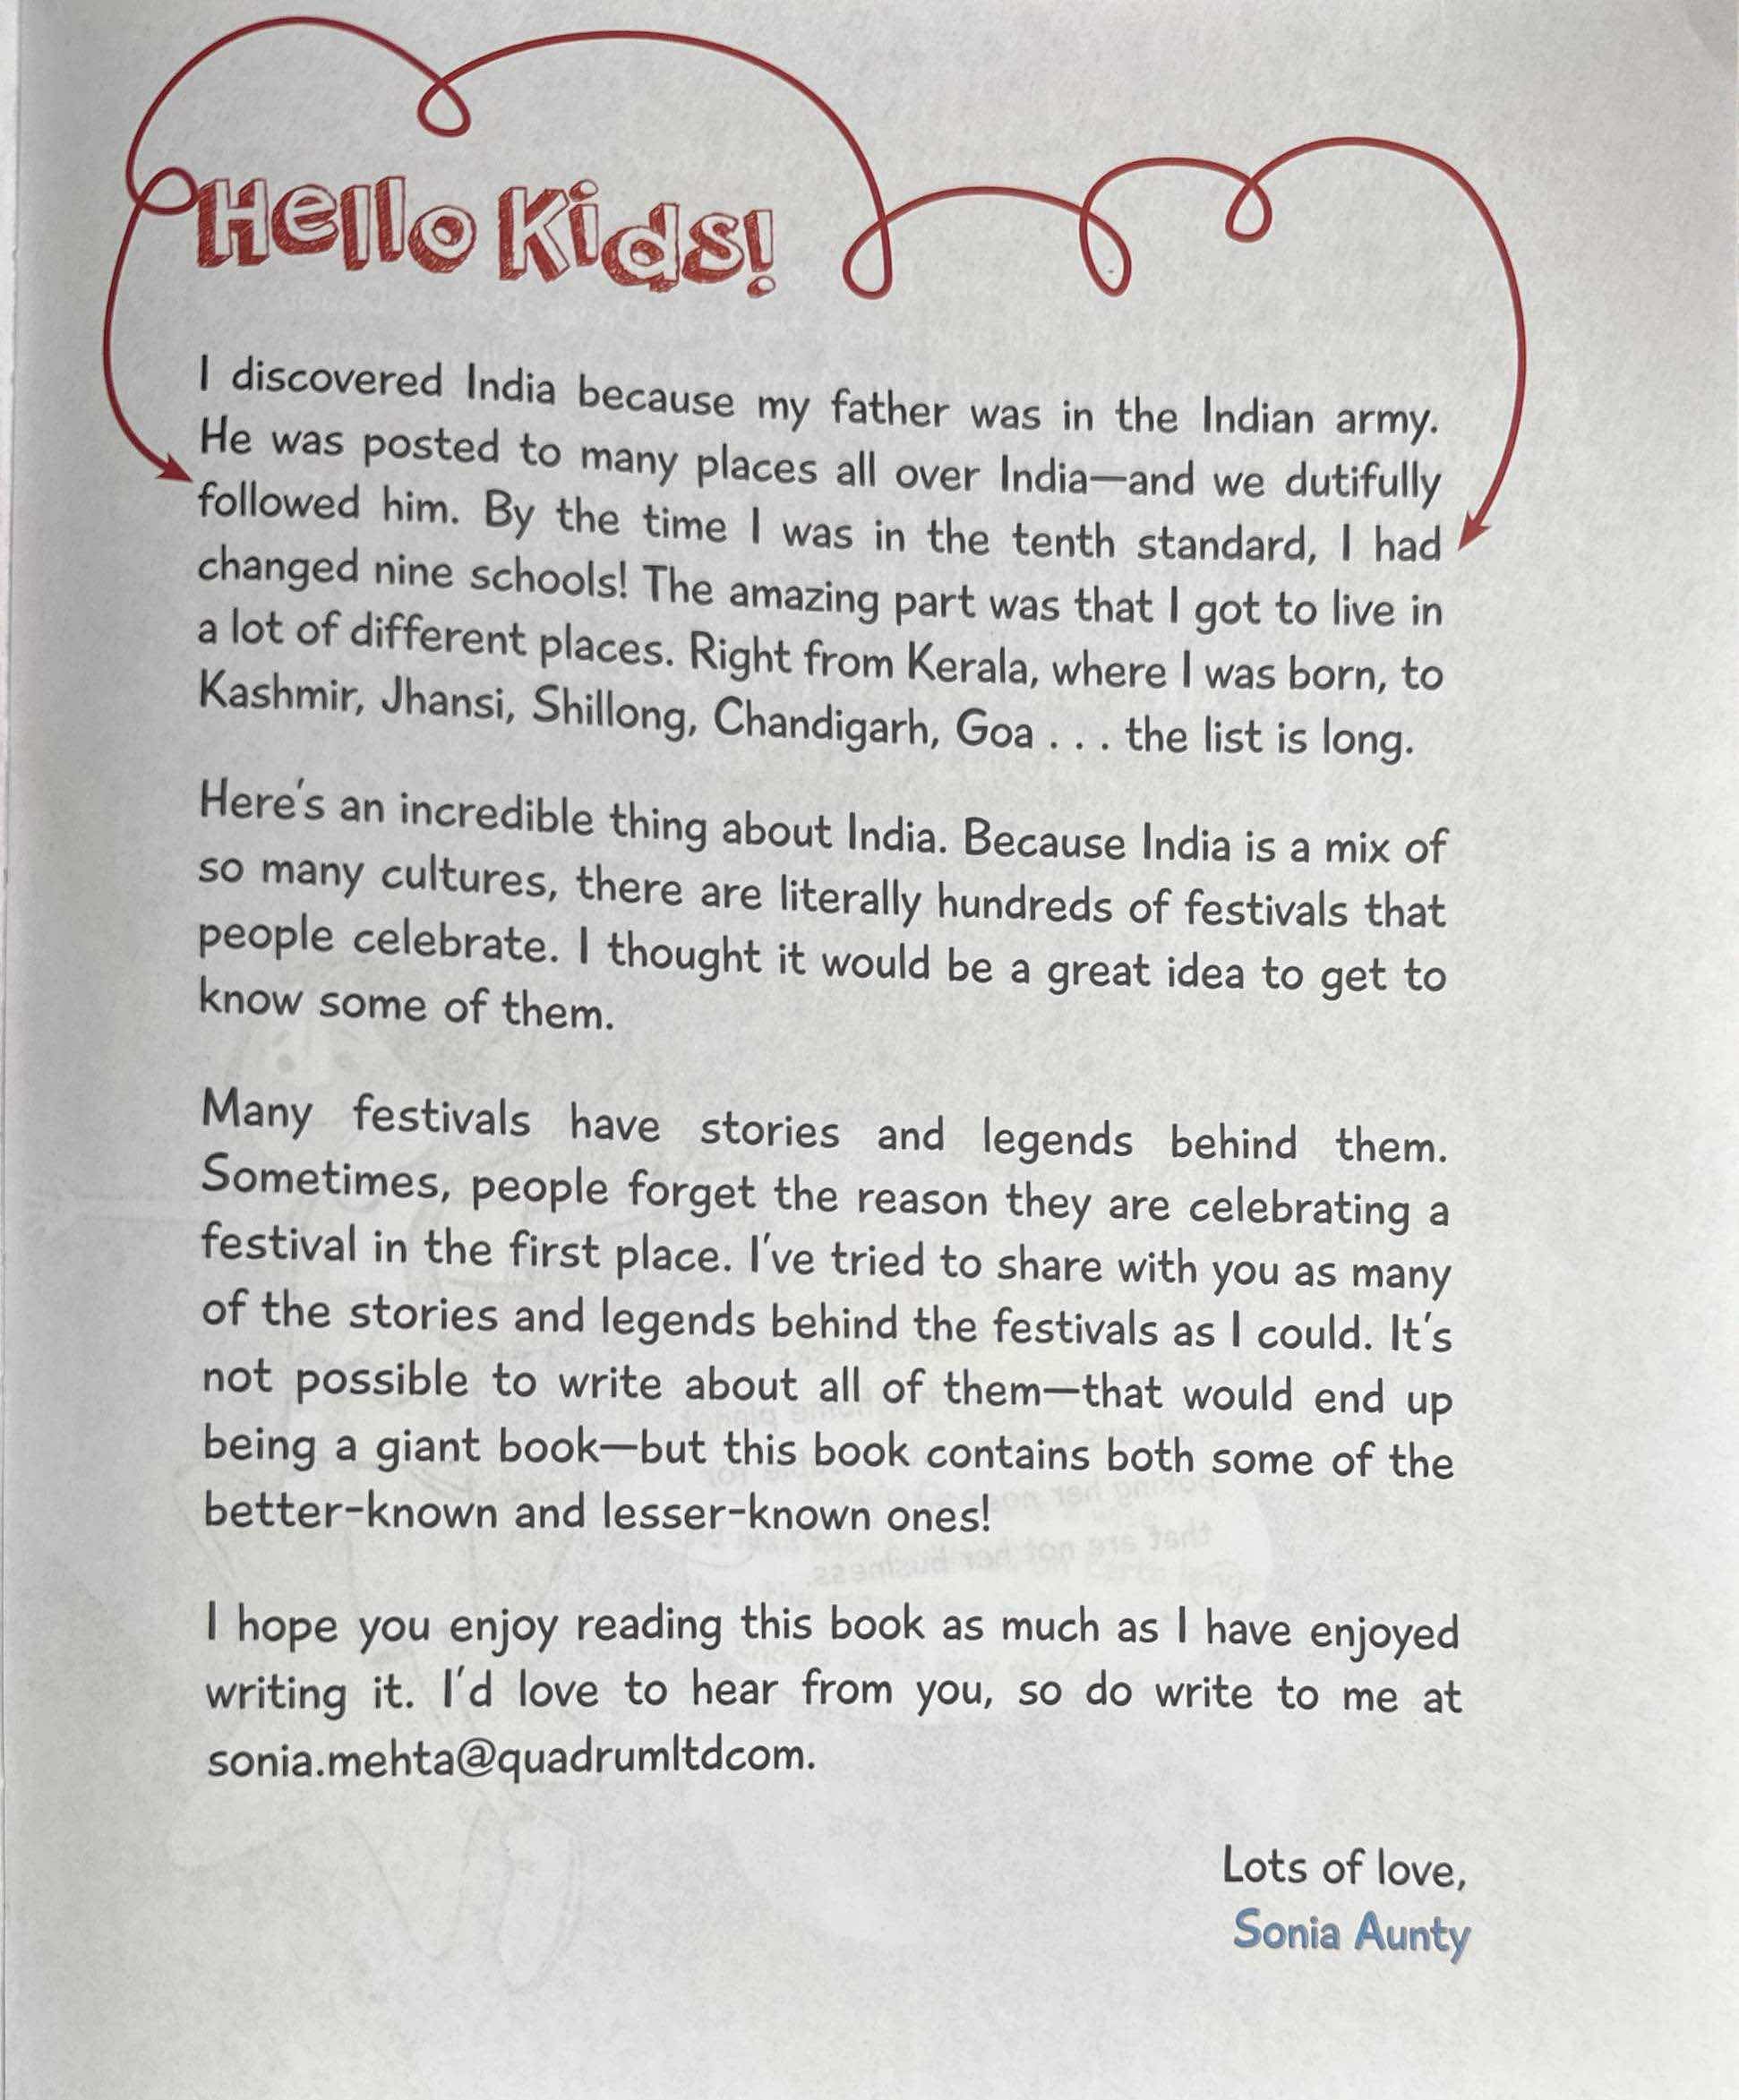 Hello Kids!
I discovered India because my father was in the Indian army.
He was posted to many places all over India—and we dutifully
followed him. By the time I was in the tenth standard, I had
changed nine schools! The amazing part was that I got to live in
a lot of different places. Right from Kerala, where I was born, to
Kashmir, Jhansi, Shillong, Chandigarh, Goa . . . the list is long.
Here's an incredible thing about India. Because India is a mix of
so many cultures, there are literally hundreds of festivals that
people celebrate. I thought it would be a great idea to get to
know some of them.
Many festivals have stories and legends behind them.
Sometimes, people forget the reason they are celebrating a
festival in the first place. I've tried to share with you as many
of the stories and legends behind the festivals as I could. It's
not possible to write about all of them—that would end up
being a giant book—but this book contains both some of the
better-known and lesser-known ones!
I hope you enjoy reading this book as much as I have enjoyed
writing it. I'd love to hear from you, so do write to me at
sonia.mehta@quadrumltdcom.
Lots of love,
Sonia Aunty